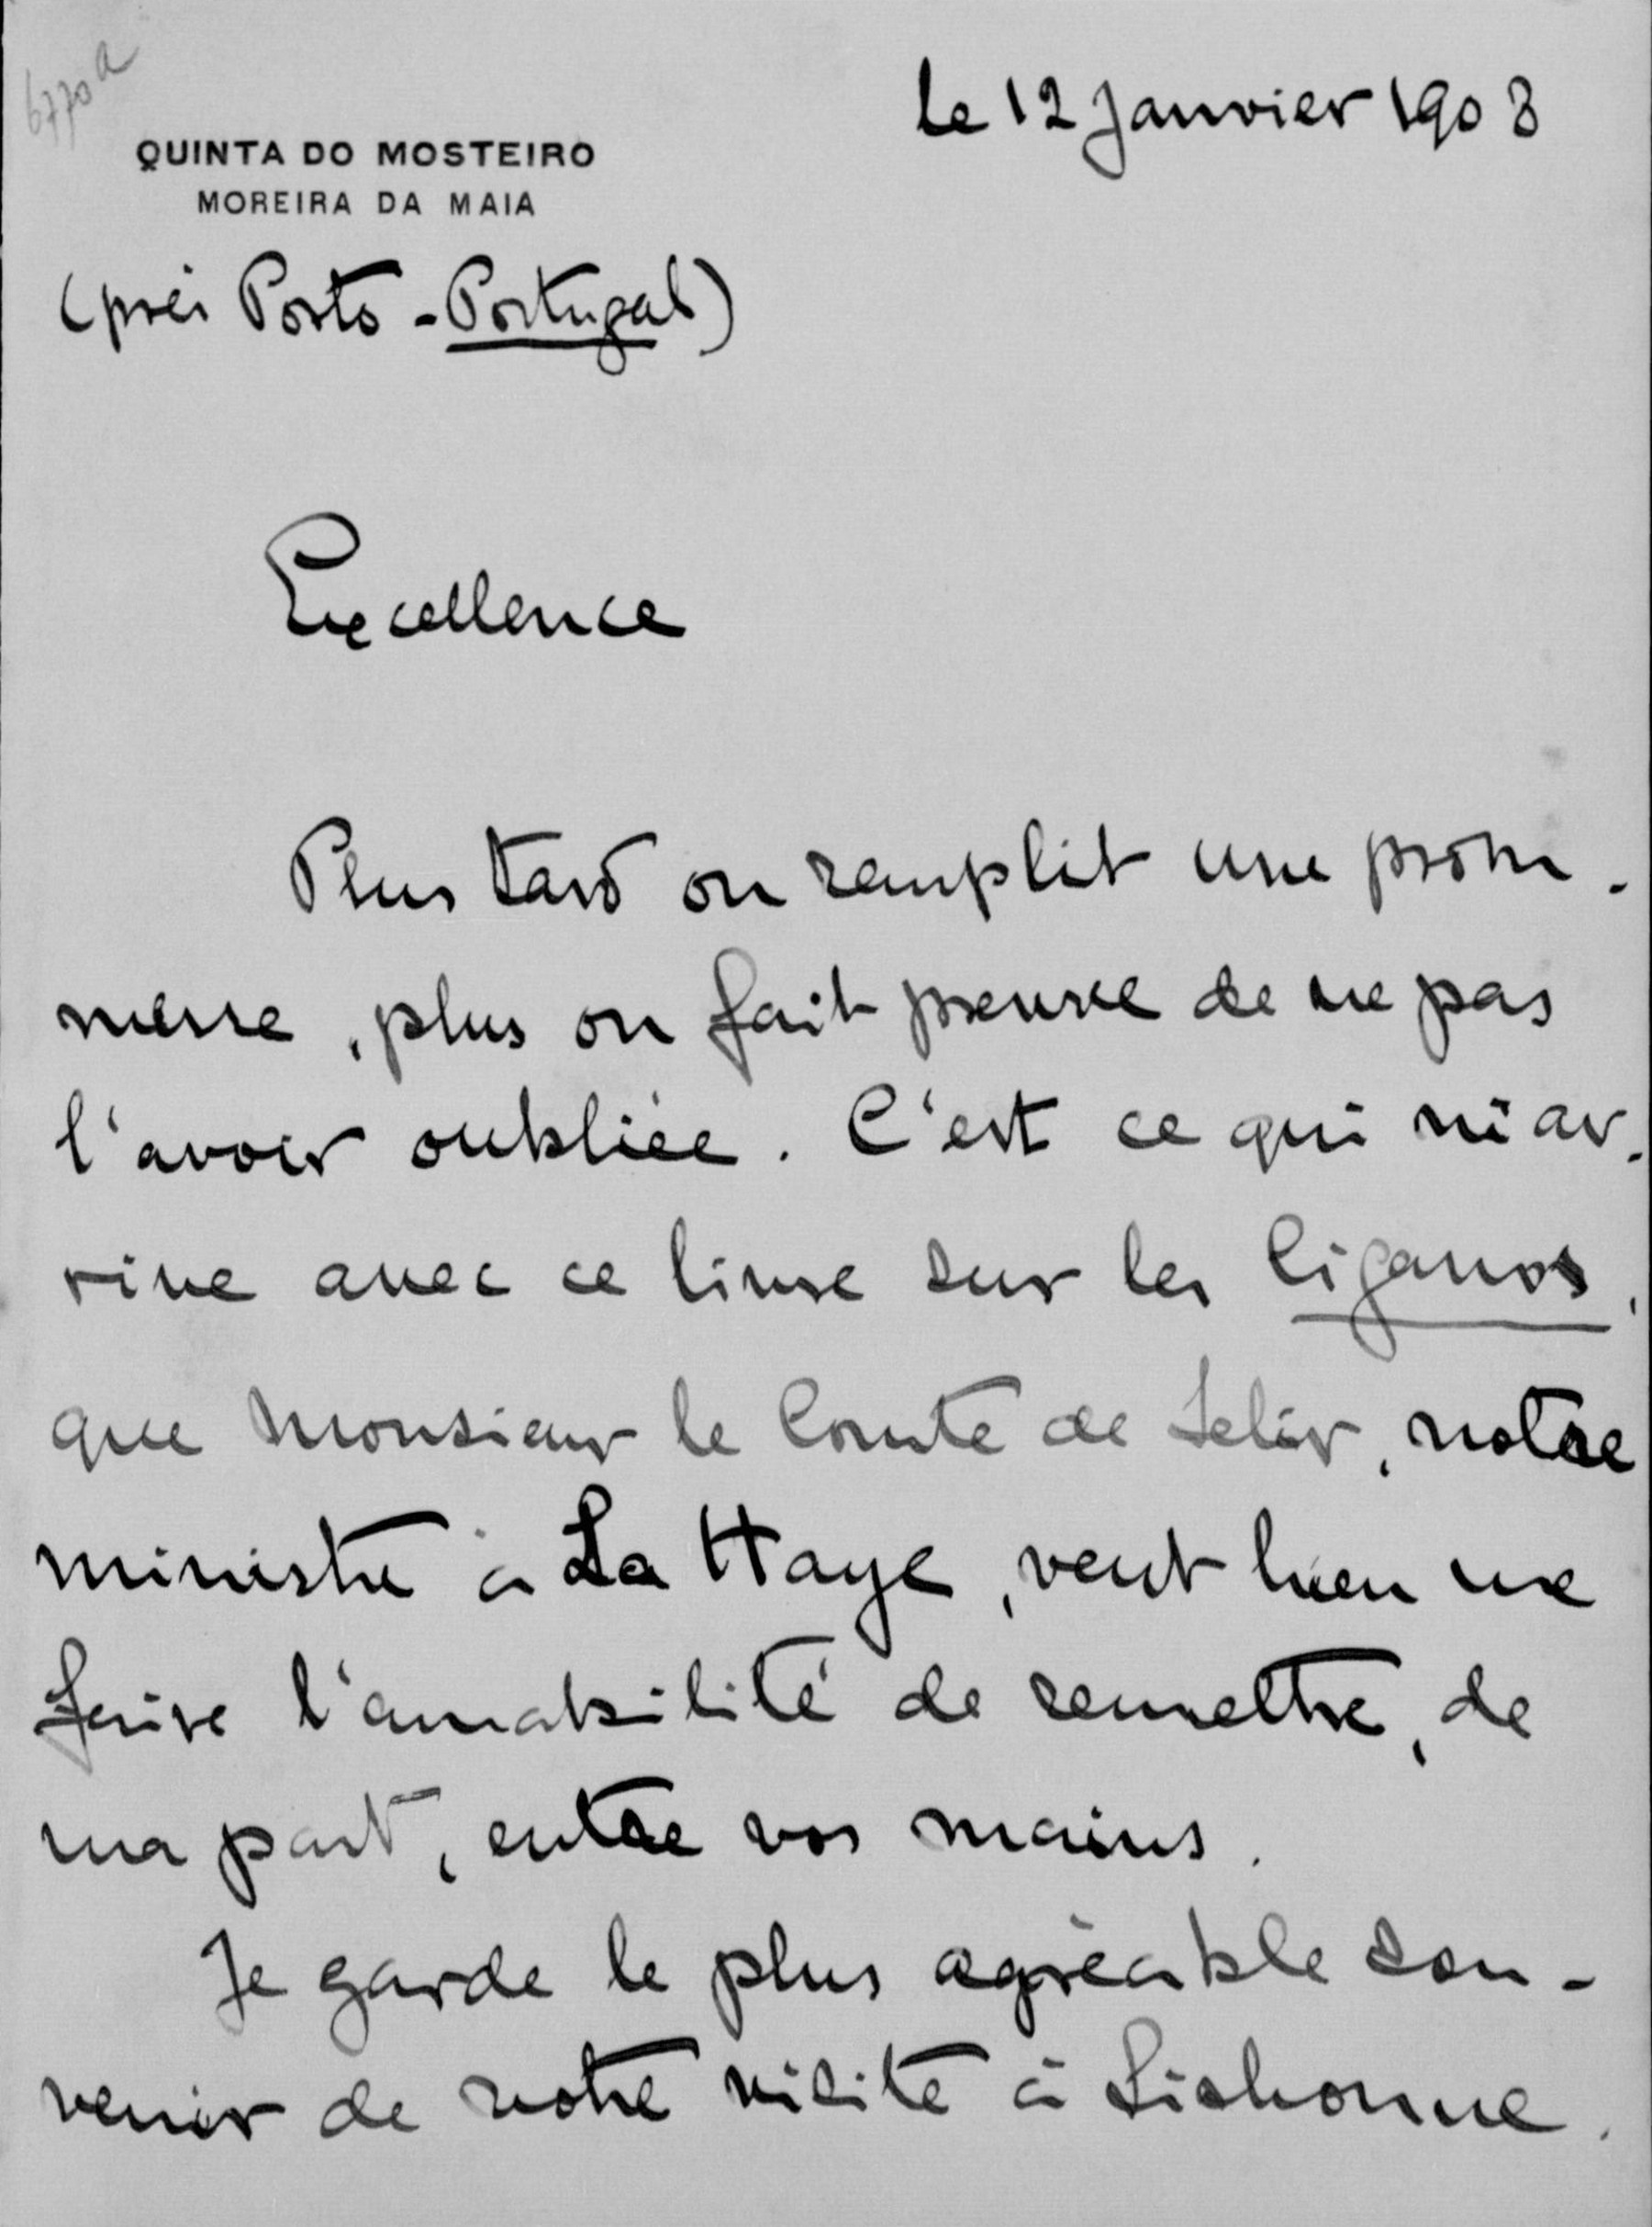 6770a
le 12 Janvier 1908
QUINTA DO MOSTEIRO
MOREIRA DA MAIA
(près Porto - Portugal)
Excellence
Plus tard on remplit une prom-
messe, plus on fait preuve de ne pas
l'avoir oubliée. C'est ce qui m'ar-
rive avec ce livre sur les Ciganos,
que Monsieur le Comte de Selir, notre
ministre à La Haye, veut bien me
faire l'amabilité de remettre, de
ma part, entre vos mains.
Je garde le plus agréable sou-
venir de votre visite à Lisbonne.